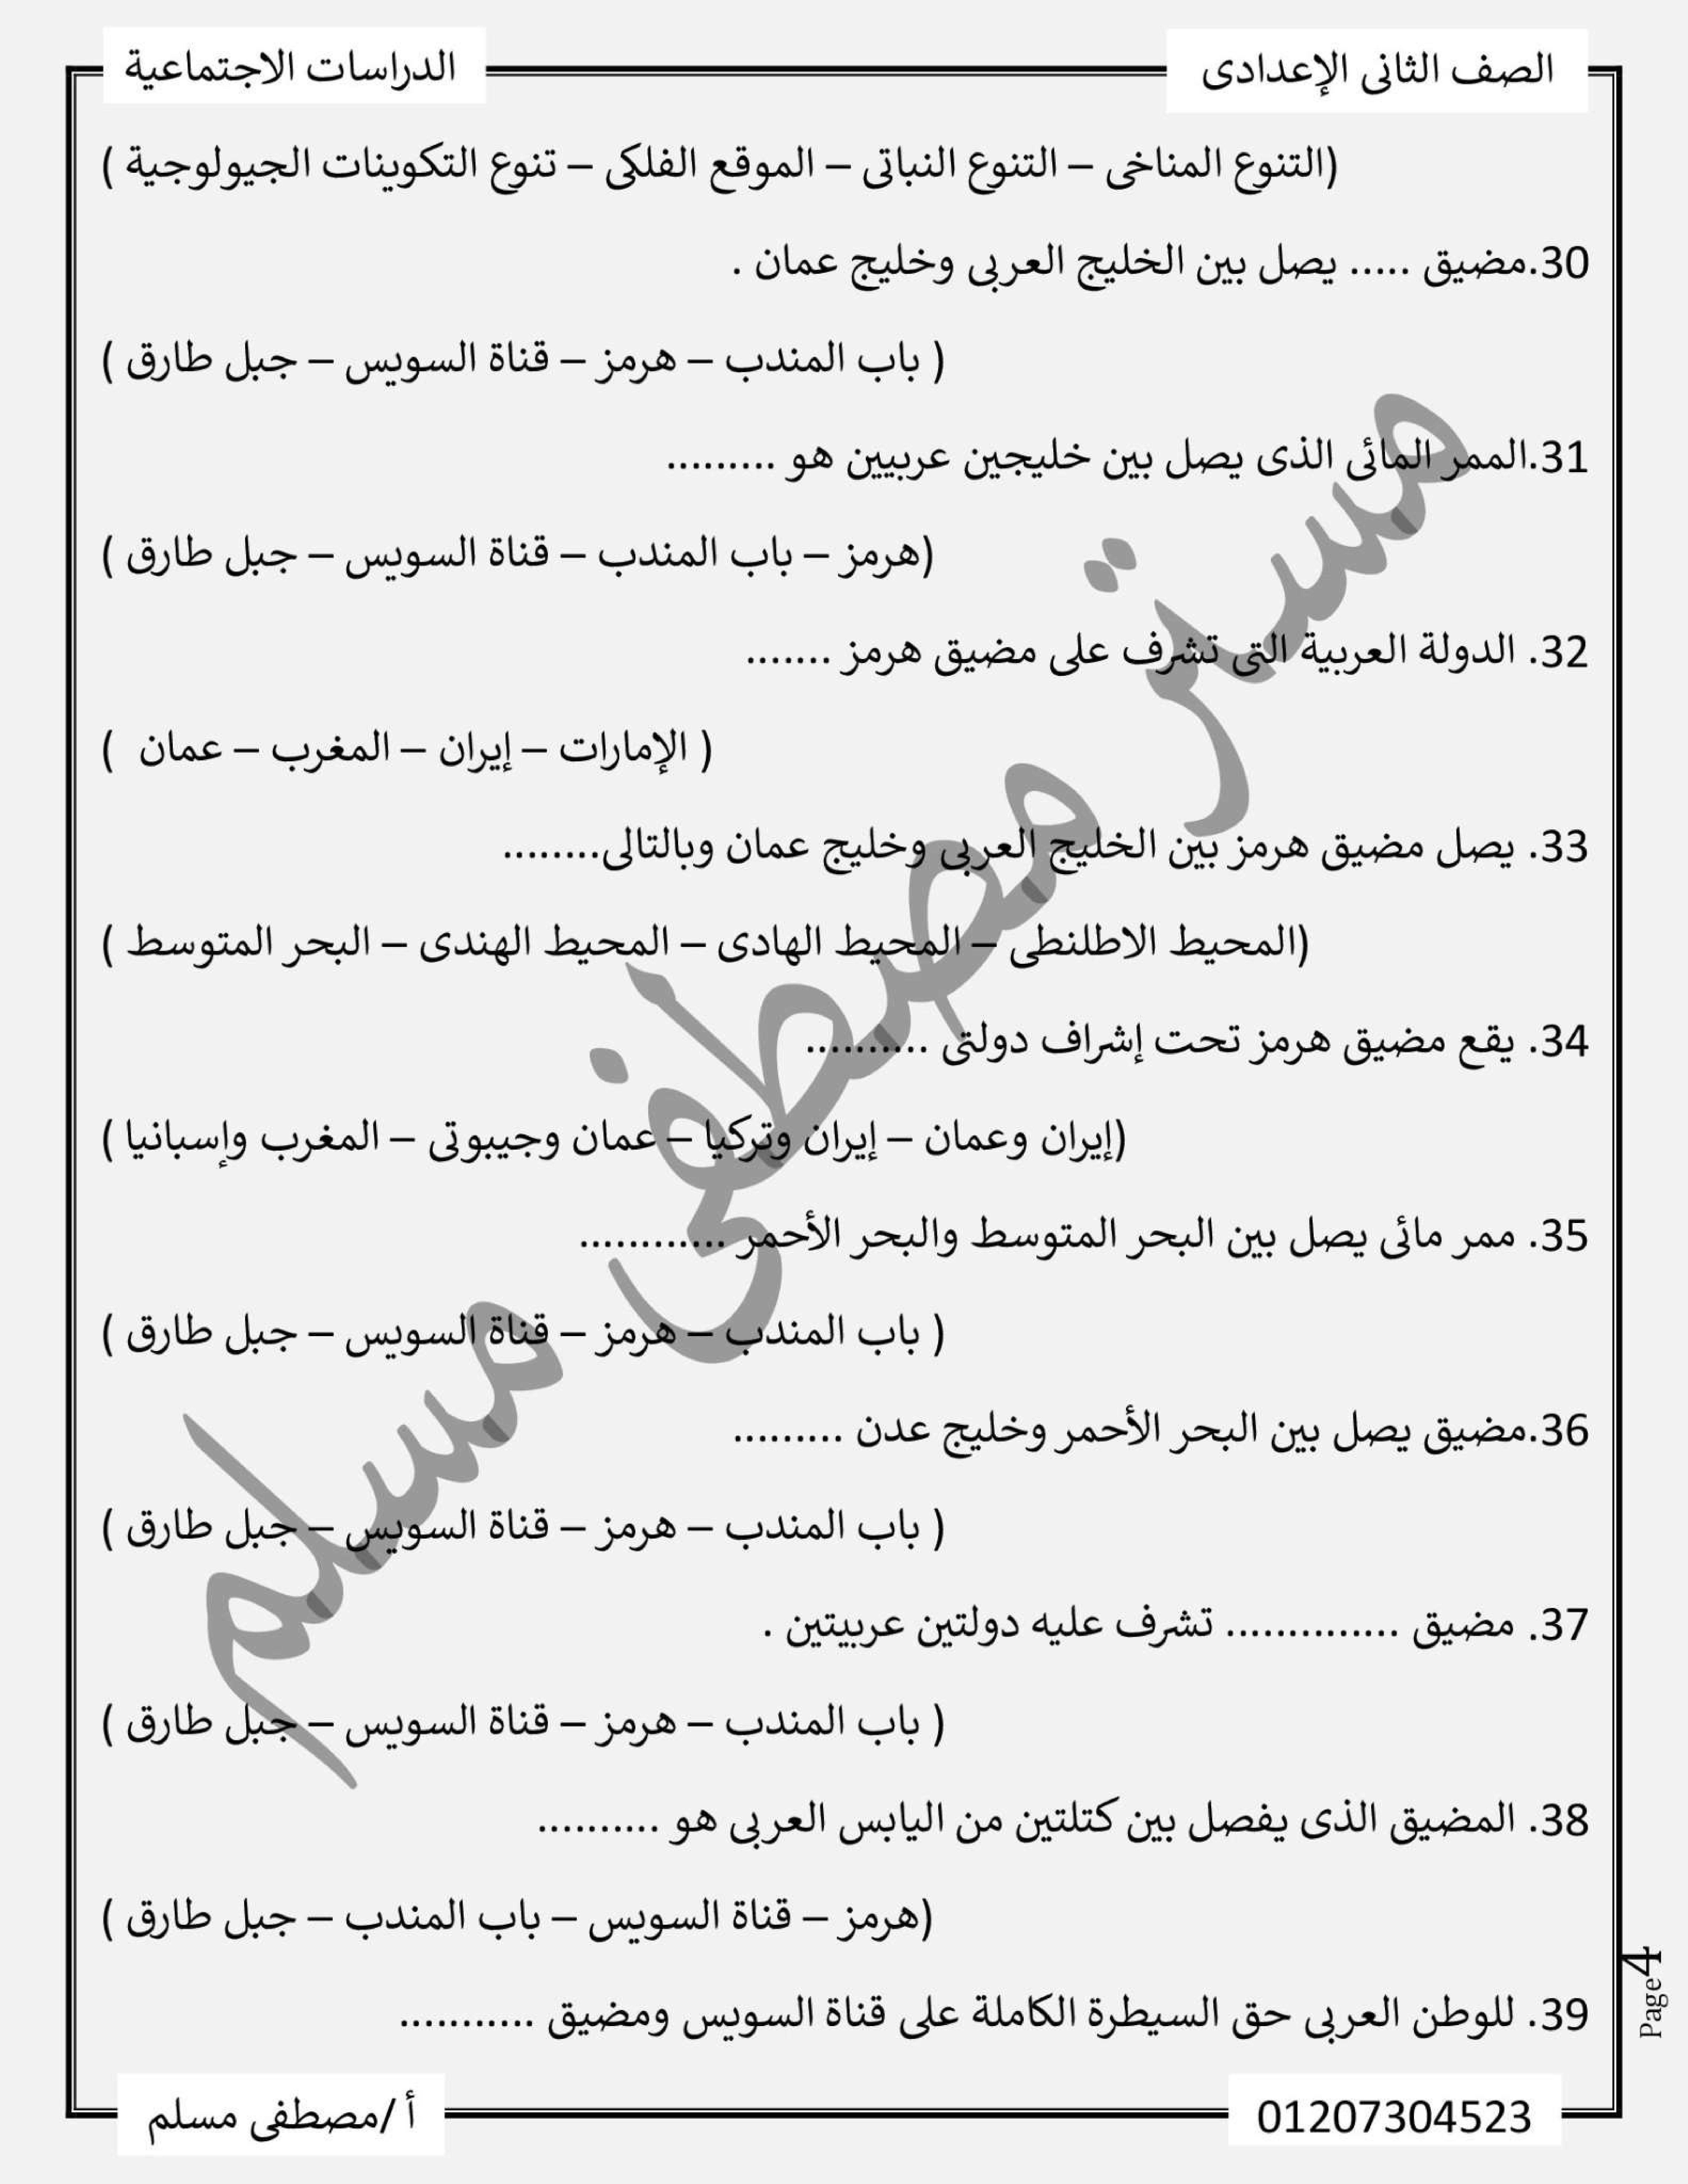 الصف الثانى الإعدادى
الدراسات الاجتماعية
(التنوع المناخى – التنوع النباتى – الموقع الفلكى – تنوع التكوينات الجيولوجية )
30.مضيق ..... يصل بين الخليج العربى وخليج عمان .
( باب المندب – هرمز – قناة السويس – جبل طارق )
31.الممر المائى الذى يصل بين خليجين عربيين هو .........
(هرمز – باب المندب – قناة السويس – جبل طارق )
32. الدولة العربية التى تشرف على مضيق هرمز .......
( الإمارات – إيران – المغرب – عمان )
33. يصل مضيق هرمز بين الخليج العربى وخليج عمان وبالتالى........
(المحيط الاطلنطى – المحيط الهادى – المحيط الهندى – البحر المتوسط )
34. يقع مضيق هرمز تحت إشراف دولتى ..........
(إيران وعمان – إيران وتركيا – عمان وجيبوتى – المغرب وإسبانيا )
35. ممر مائى يصل بين البحر المتوسط والبحر الأحمر ............
( باب المندب – هرمز – قناة السويس – جبل طارق )
36.مضيق يصل بين البحر الأحمر وخليج عدن .........
( باب المندب – هرمز – قناة السويس – جبل طارق )
37. مضيق .............. تشرف عليه دولتين عربيتين .
( باب المندب – هرمز – قناة السويس – جبل طارق )
38. المضيق الذى يفصل بين كتلتين من اليابس العربى هو ..........
(هرمز – قناة السويس – باب المندب – جبل طارق )
39. للوطن العربى حق السيطرة الكاملة على قناة السويس ومضيق ...........
مستر مصطفى مسلم
Page4
01207304523
أ /مصطفى مسلم